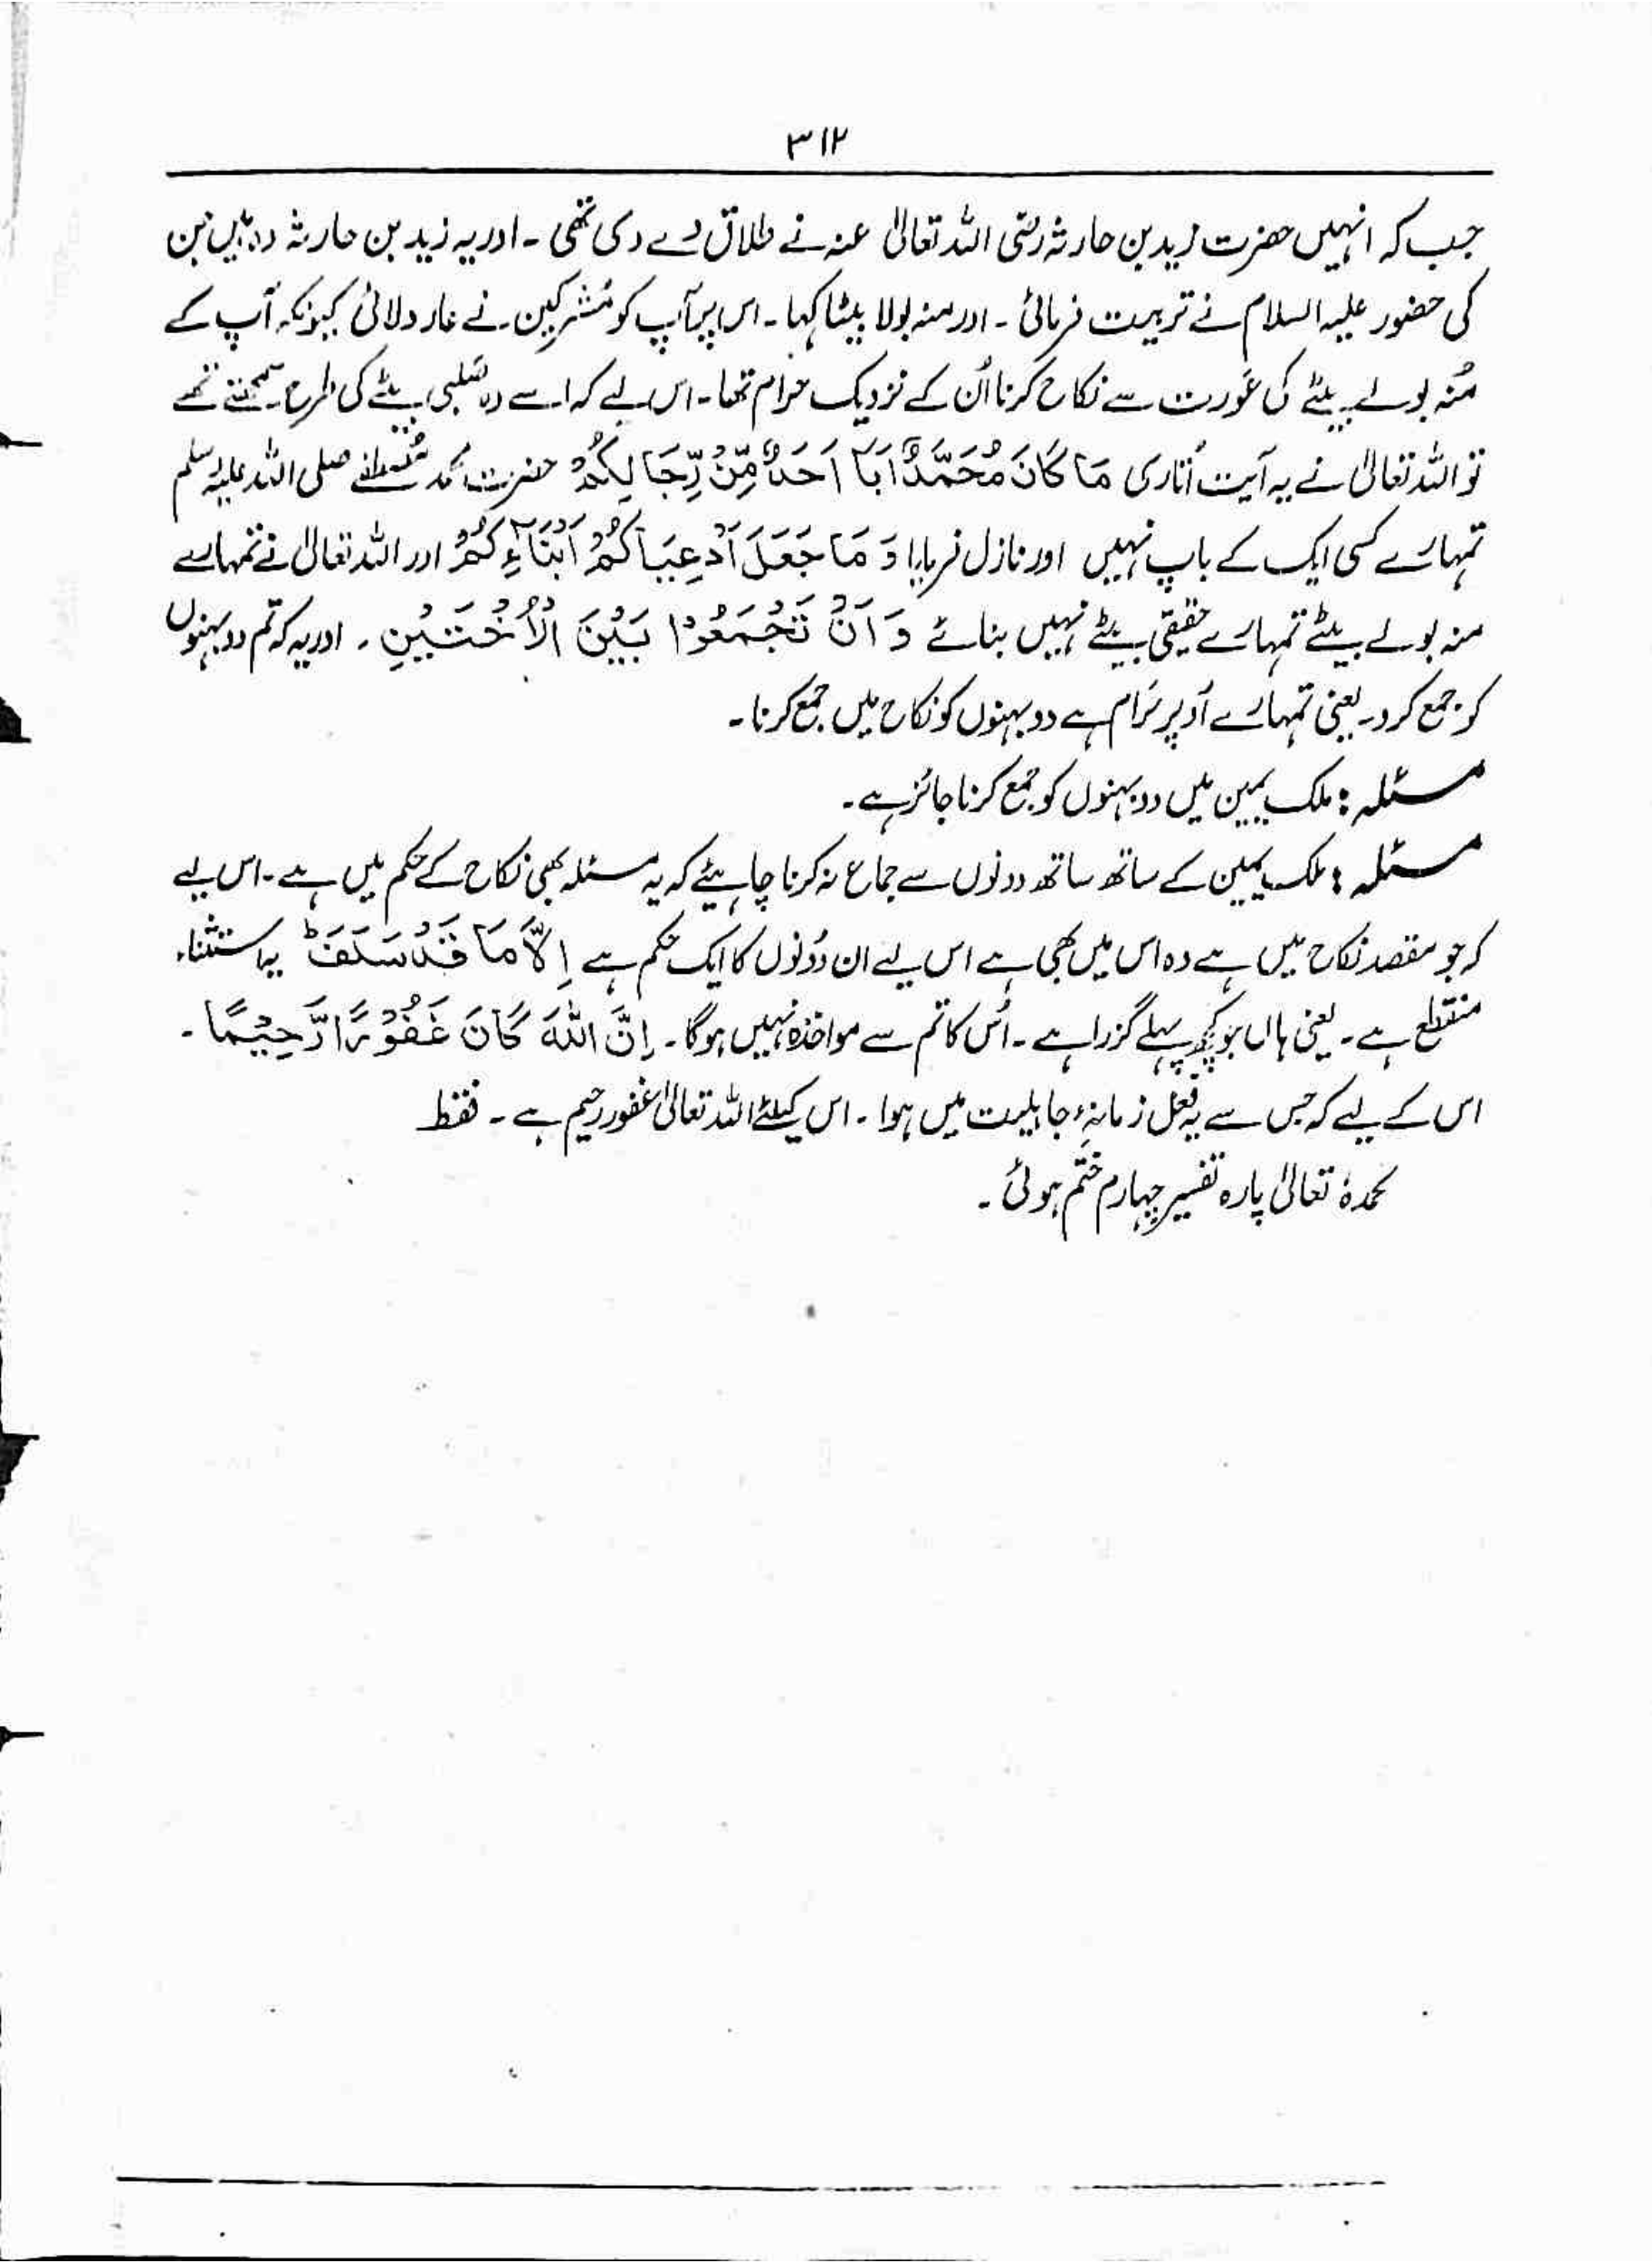 ۳۱۲
جب کہ انہیں حضرت زید بن حارثہ رضی اللہ تعالیٰ عنہ نے طلاق دے دی تھی ۔ اور یہ زید بن حارثہ وہ ہیں جن
کی حضور علیہ السلام نے تربیت فرمائی ۔ اور منہ بولا بیٹا کہا ۔ اس پر آپ کو مُشرکین نے عار دلائی کیونکہ آپ کے
مُنہ بولے بیٹے کی عَورت سے نکاح کرنا اُن کے نزدیک حرام تھا ۔ اس لیے کہ اسے وہ صُلبی بیٹے کی طرح سمجھتے تھے
تو اللہ تعالیٰ نے یہ آیت اُتاری مَا كَانَ مُحَمَّدٌ اَبَآ اَحَدٍ مِّنْ رِّجَالِكُمْ حضرت محمد مُصطفٰے صلی اللہ علیہ وسلم
تمہارے کسی ایک کے باپ نہیں اور نازل فرمایا وَ مَا جَعَلَ اَدْعِيَآكُمْ اَبْنَآءِكُمْ اور اللہ تعالیٰ نے تمہارے
منہ بولے بیٹے تمہارے حقیقی بیٹے نہیں بنائے وَ اَنْ تَجْمَعُوْا بَيْنَ الْاُخْتَيْنِ ۔ اور یہ کہ تم دو بہنوں
کو جمع کرو ۔ یعنی تمہارے اُوپر حَرام ہے دو بہنوں کو نکاح میں جمع کرنا ۔
مسئلہ : ملک یمین میں دو بہنوں کو جمع کرنا جائز ہے ۔
مسئلہ : ملک یمین کے ساتھ ساتھ دونوں سے جماع نہ کرنا چاہیئے کہ یہ مسئلہ بھی نکاح کے حکم میں ہے ۔ اس لیے
کہ جو مقصد نکاح میں ہے وہ اس میں بھی ہے اس لیے ان دونوں کا ایک حکم ہے اِلَّا مَا قَدْ سَلَفَ ؕ یہ استثناء
منقطع ہے ۔ یعنی ہاں جو کچھ پہلے گزرا ہے ۔ اُس کا تم سے مواخذہ نہیں ہوگا ۔ اِنَّ اللّٰهَ كَانَ غَفُوْرًا رَّحِيْمًا ۔
اس کے لیے کہ جس سے یہ فعل زمانۂ جاہلیت میں ہوا ۔ اس کیلئے اللہ تعالیٰ غفور رحیم ہے ۔ فقط
بحمدہٗ تعالیٰ پارہ تفسیر چہارم ختم ہوئی ۔